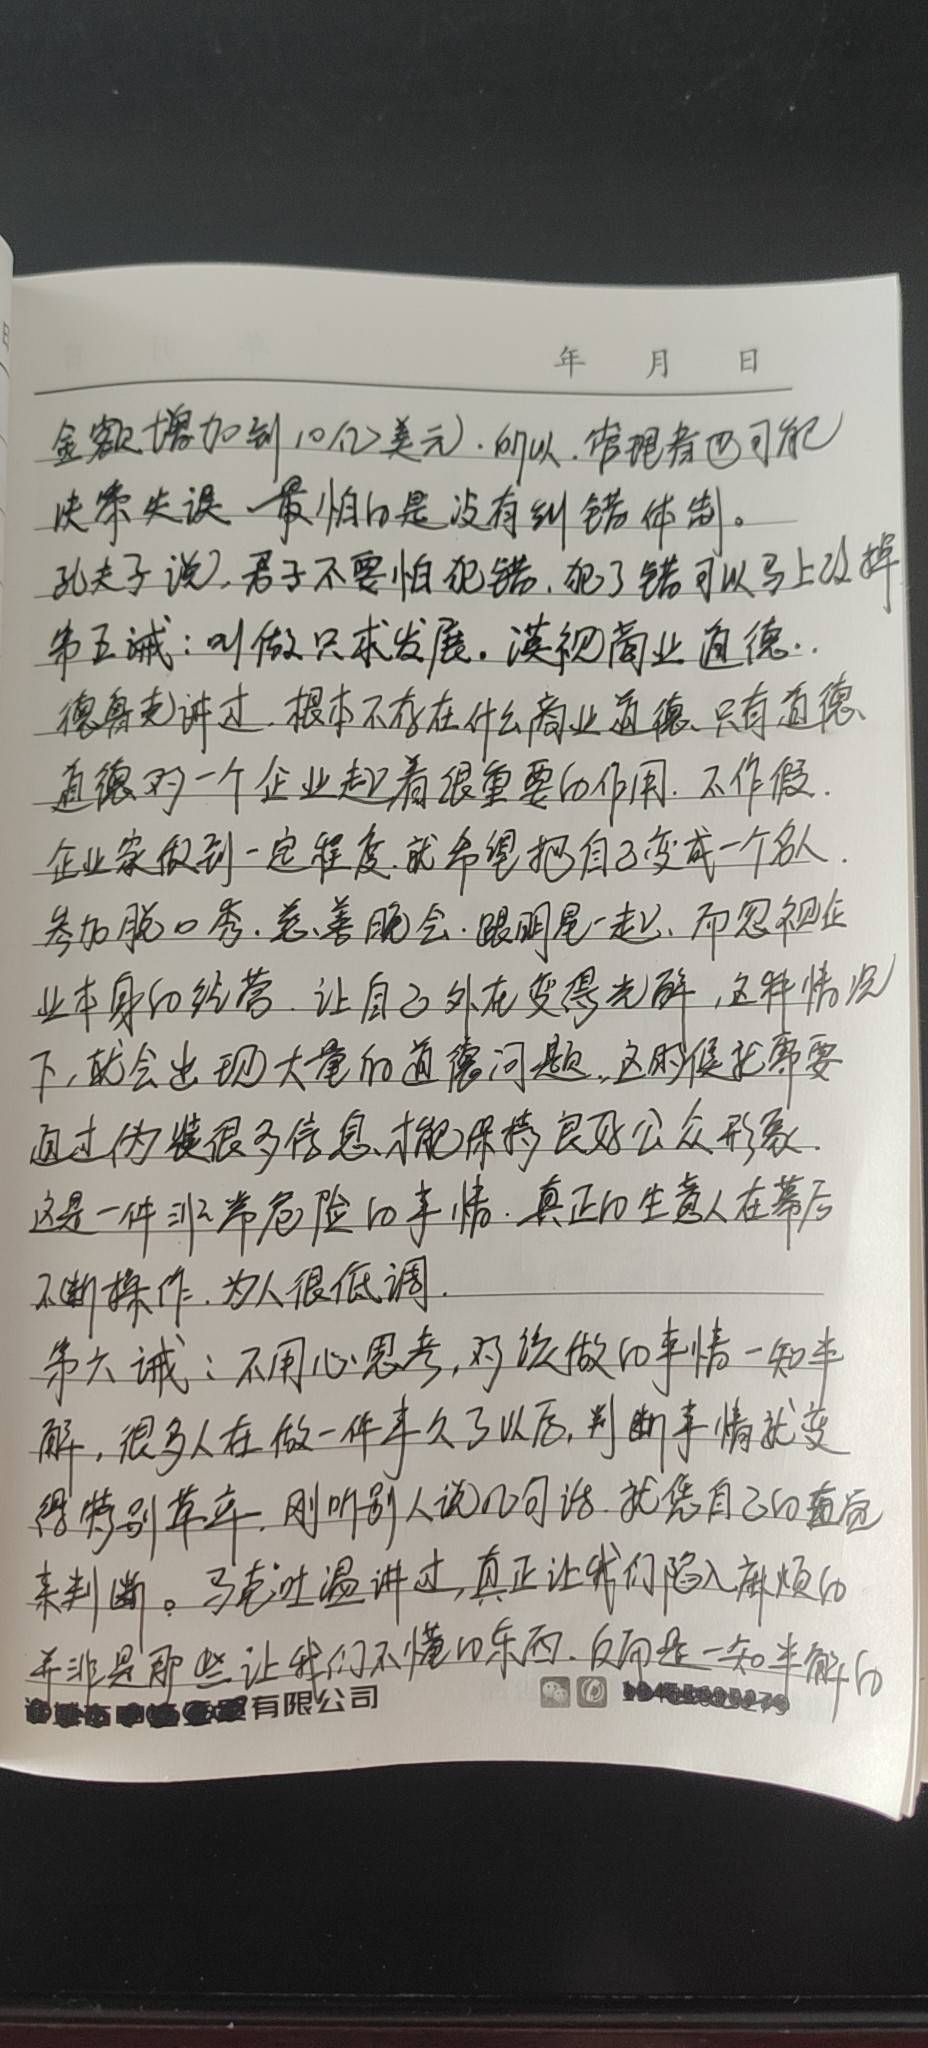 年 月 日
金额增加到10亿美元）.所以.管理者也可能
决策失误 最怕的是没有纠错体制。
孔夫子说,君子不要怕犯错.犯了错可以马上改掉
第五诫:叫做只求发展。漠视商业道德..
德鲁克讲过.根本不存在什么商业道德、只有道德、
道德对一个企业起着很重要的作用.不作假.
企业家做到一定程度.就希望把自己变成一个名人.
参加脱口秀.慈善晚会.跟明星一起、而忽视企
业本身的经营.让自己外在变得光鲜,这种情况
下,就会出现大量的道德问题..这时候就需要
通过伪装很多信息、才能保持良好公众形象.
这是一件非常危险的事情.真正的生意人在幕后
不断操作.为人很低调.
第六诫:不用心思考,对该做的事情一知半
解,很多人在做一件事久了以后,判断事情就变
得特别草率.刚听别人说几句话.就凭自己的直觉
来判断。马克吐温讲过,真正让我们陷入麻烦的
并非是那些让我们不懂的东西.反而是一知半解的
有限公司